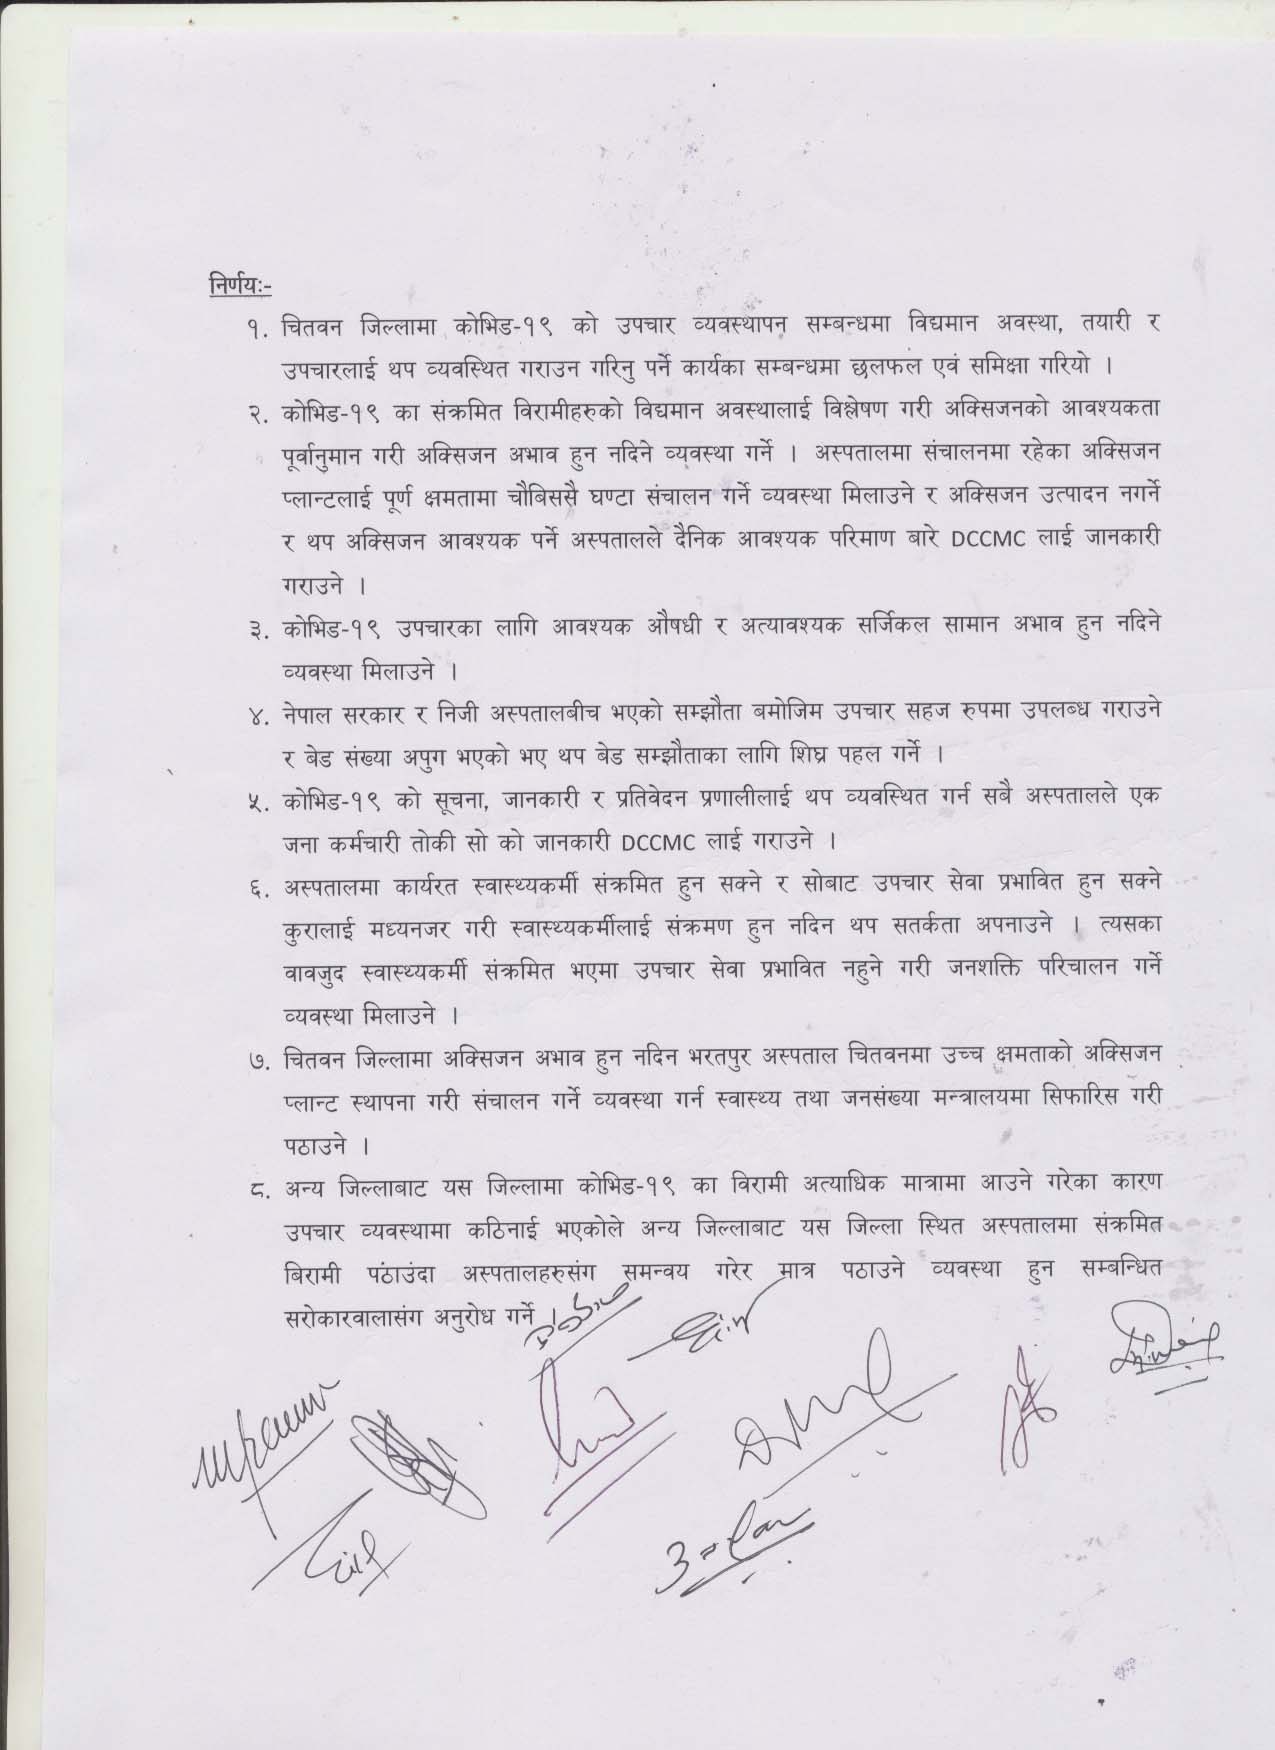 निर्णयः-
१. चितवन जिल्लामा कोभिड-१९ को उपचार व्यवस्थापन सम्बन्धमा विद्यमान अवस्था, तयारी र
उपचारलाई थप व्यवस्थित गराउन गरिनु पर्ने कार्यका सम्बन्धमा छलफल एवं समिक्षा गरियो ।
२. कोभिड-१९ का संक्रमित विरामीहरुको विद्यमान अवस्थालाई विश्लेषण गरी अक्सिजनको आवश्यकता
पूर्वानुमान गरी अक्सिजन अभाव हुन नदिने व्यवस्था गर्ने । अस्पतालमा संचालनमा रहेका अक्सिजन
प्लान्टलाई पूर्ण क्षमतामा चौबिससै घण्टा संचालन गर्ने व्यवस्था मिलाउने र अक्सिजन उत्पादन नगर्ने
र थप अक्सिजन आवश्यक पर्ने अस्पतालले दैनिक आवश्यक परिमाण बारे DCCMC लाई जानकारी
गराउने ।
३. कोभिड-१९ उपचारका लागि आवश्यक औषधी र अत्यावश्यक सर्जिकल सामान अभाव हुन नदिने
व्यवस्था मिलाउने ।
४. नेपाल सरकार र निजी अस्पतालबीच भएको सम्झौता बमोजिम उपचार सहज रुपमा उपलब्ध गराउने
र बेड संख्या अपुग भएको भए थप बेड सम्झौताका लागि शिघ्र पहल गर्ने ।
५. कोभिड-१९ को सूचना, जानकारी र प्रतिवेदन प्रणालीलाई थप व्यवस्थित गर्न सबै अस्पतालले एक
जना कर्मचारी तोकी सो को जानकारी DCCMC लाई गराउने ।
६. अस्पतालमा कार्यरत स्वास्थ्यकर्मी संक्रमित हुन सक्ने र सोबाट उपचार सेवा प्रभावित हुन सक्ने
कुरालाई मध्यनजर गरी स्वास्थ्यकर्मीलाई संक्रमण हुन नदिन थप सतर्कता अपनाउने । त्यसका
वावजुद स्वास्थ्यकर्मी संक्रमित भएमा उपचार सेवा प्रभावित नहुने गरी जनशक्ति परिचालन गर्ने
व्यवस्था मिलाउने ।
७. चितवन जिल्लामा अक्सिजन अभाव हुन नदिन भरतपुर अस्पताल चितवनमा उच्च क्षमताको अक्सिजन
प्लान्ट स्थापना गरी संचालन गर्ने व्यवस्था गर्न स्वास्थ्य तथा जनसंख्या मन्त्रालयमा सिफारिस गरी
पठाउने ।
८. अन्य जिल्लाबाट यस जिल्लामा कोभिड-१९ का विरामी अत्याधिक मात्रामा आउने गरेका कारण
उपचार व्यवस्थामा कठिनाई भएकोले अन्य जिल्लाबाट यस जिल्ला स्थित अस्पतालमा संक्रमित
बिरामी पंठाउंदा अस्पतालहरुसंग समन्वय गरेर मात्र पठाउने व्यवस्था हुन सम्बन्धित
सरोकारवालासंग अनुरोध गर्ने ।